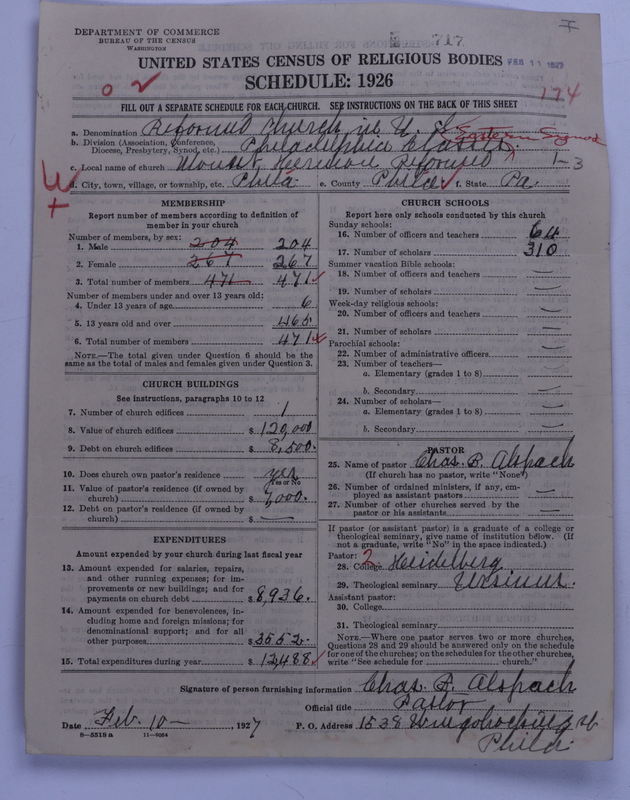 DEPARTMENT OF COMMERCE
BUREAU OF THE CENSUS
WASHINGTON
717
FEB 11 1927
UNITED STATES CENSUS OF RELIGIOUS BODIES
SCHEDULE: 1926
174
FILL OUT A SEPARATE SCHEDULE FOR EACH CHURCH. SEE INSTRUCTIONS ON THE BACK OF THIS SHEET
a. Denomination Reformed Church in U. S.
Eastern Synod
b. Division (Association, Conference, Diocese, Presbytery, Synod, etc.) Philadelphia Classis
c. Local name of church Mount Hermon Reformed
1-3
d. City, town, village, or township, etc. Phila e. County Phila f. State Pa.
MEMBERSHIP
Report number of members according to definition of member in your church
Number of members, by sex:
1. Male 204 204
2. Female 267 267
3. Total number of members 471 471
Number of members under and over 13 years old:
4. Under 13 years of age 6
5. 13 years old and over 465
6. Total number of members 471
NOTE.—The total given under Question 6 should be the same as the total of males and females given under Question 3.
CHURCH BUILDINGS
See instructions, paragraphs 10 to 12
7. Number of church edifices 1
8. Value of church edifices $ 120,000
9. Debt on church edifices $ 8,500.
10. Does church own pastor's residence yes
Yes or No
11. Value of pastor's residence (if owned by church) $ 7,000.
12. Debt on pastor's residence (if owned by church) $ —
EXPENDITURES
Amount expended by your church during last fiscal year
13. Amount expended for salaries, repairs, and other running expenses; for improvements or new buildings; and for payments on church debt $ 8,936.
14. Amount expended for benevolences, including home and foreign missions; for denominational support; and for all other purposes $ 3552.
15. Total expenditures during year $ 12,488
CHURCH SCHOOLS
Report here only schools conducted by this church
Sunday schools:
16. Number of officers and teachers 64
17. Number of scholars 310
Summer vacation Bible schools:
18. Number of officers and teachers —
19. Number of scholars —
Week-day religious schools:
20. Number of officers and teachers —
21. Number of scholars —
Parochial schools:
22. Number of administrative officers —
23. Number of teachers—
a. Elementary (grades 1 to 8) —
b. Secondary —
24. Number of scholars—
a. Elementary (grades 1 to 8) —
b. Secondary —
PASTOR
25. Name of pastor Chas. B. Alspach
(If church has no pastor, write "None")
26. Number of ordained ministers, if any, employed as assistant pastors —
27. Number of other churches served by the pastor or his assistants —
If pastor (or assistant pastor) is a graduate of a college or theological seminary, give name of institution below. (If not a graduate, write "No" in the space indicated.)
Pastor:
28. College Heidelberg
29. Theological seminary Ursinus.
Assistant pastor:
30. College
31. Theological seminary
NOTE.—Where one pastor serves two or more churches, Questions 28 and 29 should be answered only on the schedule for one of the churches; on the schedules for the other churches, write "See schedule for church."
Signature of person furnishing information Chas. B. Alspach
Official title Pastor
Date Feb. 10 — , 1927 P. O. Address 1538
Phila.
8—5518 a 11—9064